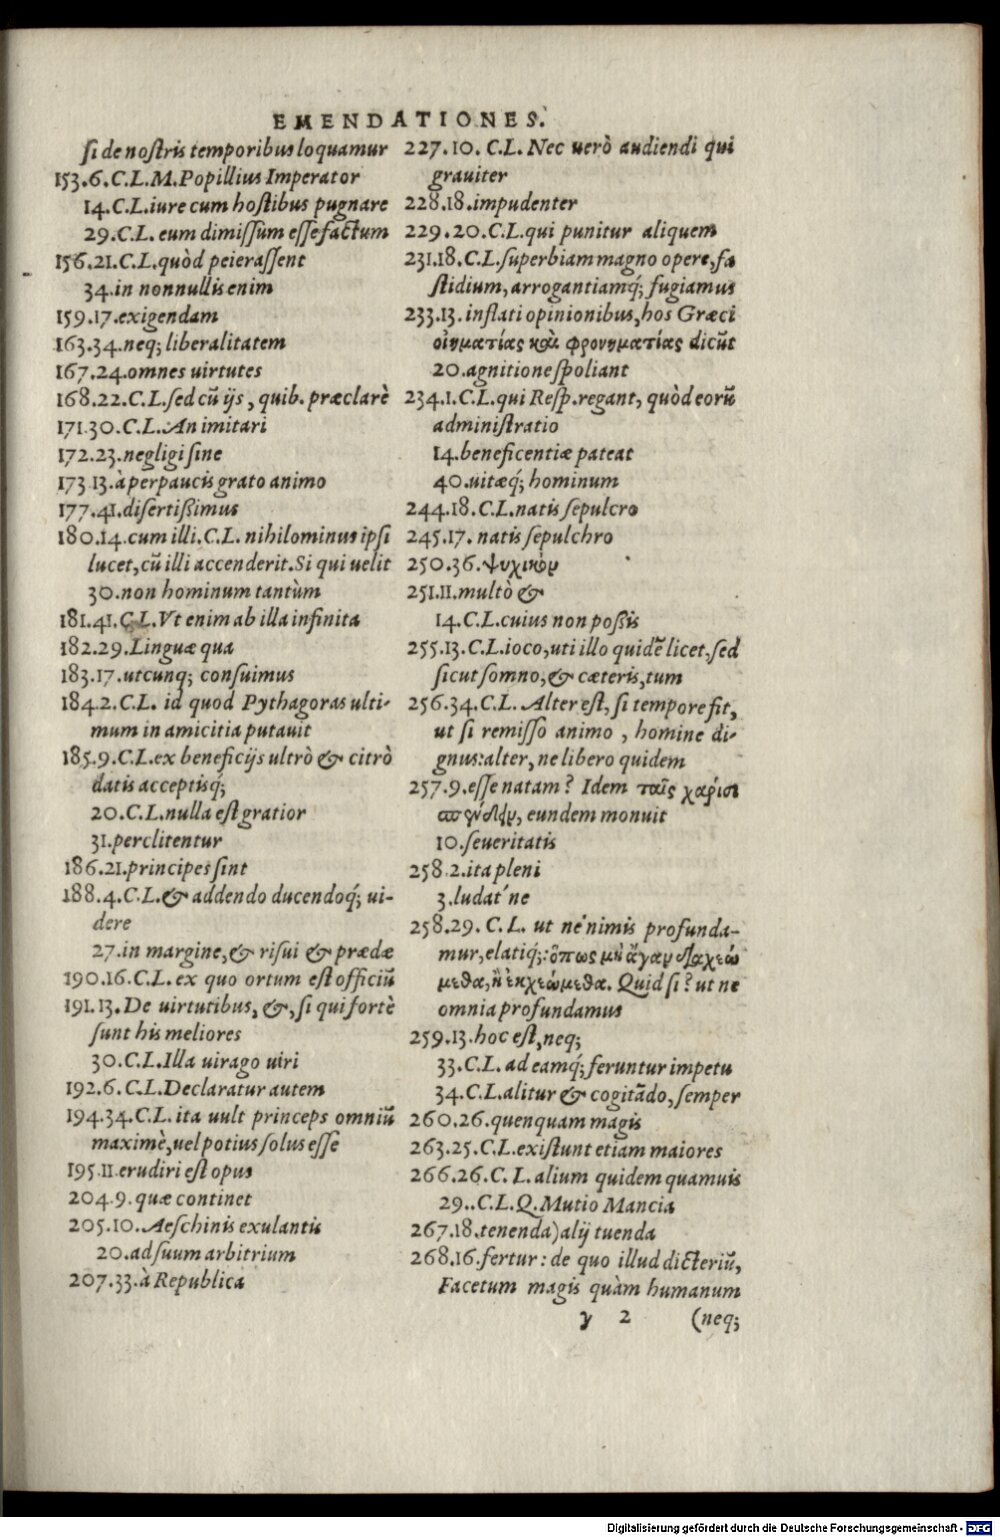 EMENDATIONES.
ſi de noſtris temporibus loquamur
153.6.C.L.M.Popillius Imperator
14.C.L.iure cum hoſtibus pugnare
29.C.L. eum dimiſſum eſſe factum
156.21.C.L.quòd peieraſſent
34.in nonnullis enim
159.17.exigendam
163.34.neq; liberalitatem
167.24.omnes uirtutes
168.22.C.L.ſed cũ ijs, quib. præclarè
171.30.C.L.An imitari
172.23.negligi ſine
173 13.à perpaucis grato animo
177.41.diſertißimus
180.14.cum illi.C.L. nihilominus ipſi
lucet,cũ illi accenderit.Si qui uelit
30.non hominum tantùm
181.41.C.L.Vt enim ab illa infinita
182.29.Linguæ qua
183.17.utcunq; conſuimus
184.2.C.L. id quod Pythagoras ulti-
mum in amicitia putauit
185.9.C.L.ex beneficijs ultrò & citrò
datis acceptisq́;
20.C.L.nulla eſt gratior
31.perclitentur
186.21.principes ſint
188.4.C.L.& addendo ducendoq́; ui-
dere
27.in margine,& riſui & prædæ
190.16.C.L. ex quo ortum eſt officiũ
191.13.De uirtutibus, &, ſi qui fortè
ſunt his meliores
30.C.L.Illa uirago uiri
192.6.C.L.Declaratur autem
194.34.C.L. ita uult princeps omniũ
maximè,uel potius ſolus eſſe
195.11.erudiri eſt opus
204.9.quæ continet
205.10.Aeſchinis exulantis
20.ad ſuum arbitrium
207.33.à Republica
227.10. C.L. Nec uerò audiendi qui
grauiter
228.18.impudenter
229.20.C.L.qui punitur aliquem
231.18.C.L.ſuperbiam magno opere,fa
ſtidium, arrogantiamq́; fugiamus
233.13. inflati opinionibus,hos Græci
οἰηματίας καὶ φρονηματίας dicũt
20.agnitione ſpoliant
234.1.C.L.qui Reſp.regant, quòd eorũ
adminiſtratio
14.beneficentiæ pateat
40.uitæq́; hominum
244.18.C.L.natis ſepulcro
245.17. natis ſepulchro
250.36.ψυχικὸν
251.11.multò &
14.C.L.cuius non poßis
255.13.C.L.ioco,uti illo quidẽ licet,ſed
ſicut ſomno,& cæteris,tum
256.34.C.L. Alter eſt, ſi tempore fit,
ut ſi remiſſo animo , homine di-
gnus:alter, ne libero quidem
257.9.eſſe natam? Idem ταῖς χάρισι
eundem monuit
10.ſeueritatis
258.2.ita pleni
3.ludat´ne
258.29. C. L. ut ne nimis profunda-
mur,elatiq́;:ὅπως μὴ ἄγαν διαχεώ
μεθα,ἢ ἐκχεώμεθα. Quid ſi? ut ne
omnia profundamus
259.13.hoc eſt,neq;
33.C.L. ad eamq́; feruntur impetu
34.C.L.alitur & cogitãdo, ſemper
260.26.quenquam magis
263.25.C.L.exiſtunt etiam maiores
266.26.C. L. alium quidem quamuis
29..C.L.Q.Mutio Mancia
267.18.tenenda)alij tuenda
268.16.fertur: de quo illud dicteriũ,
Facetum magis quàm humanum
y 2 (neq;
Digitalisierung gefördert durch die Deutsche Forschungsgemeinschaft - DFG